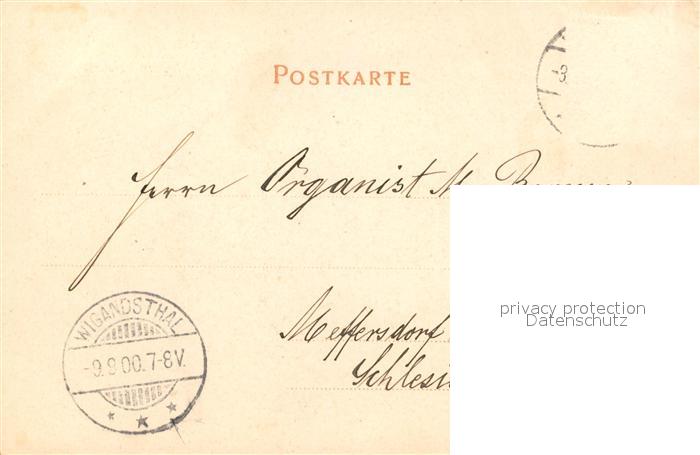 POSTKARTE
Herrn Organist M.
privacy protection
Datenschutz
WIGANDSTHAL
-9.9.00.7-8V.
Meffersdorf
Schlesi